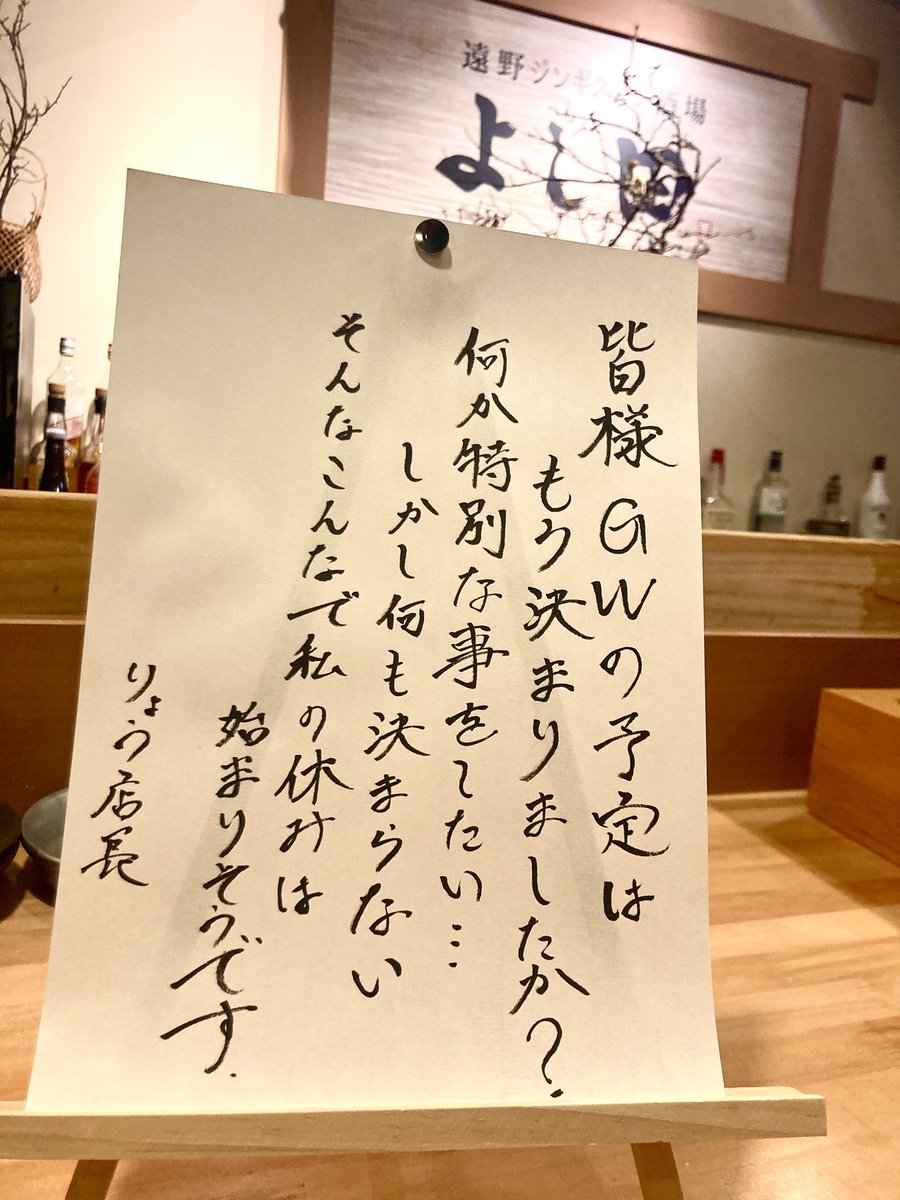 遠野ジンギスかん酒場
よし田
皆様GWの予定は
もう決まりましたか?
何か特別な事をしたい…
しかし何も決まらない
そんなこんなで私の休みは
始まりそうです.
りょう店長